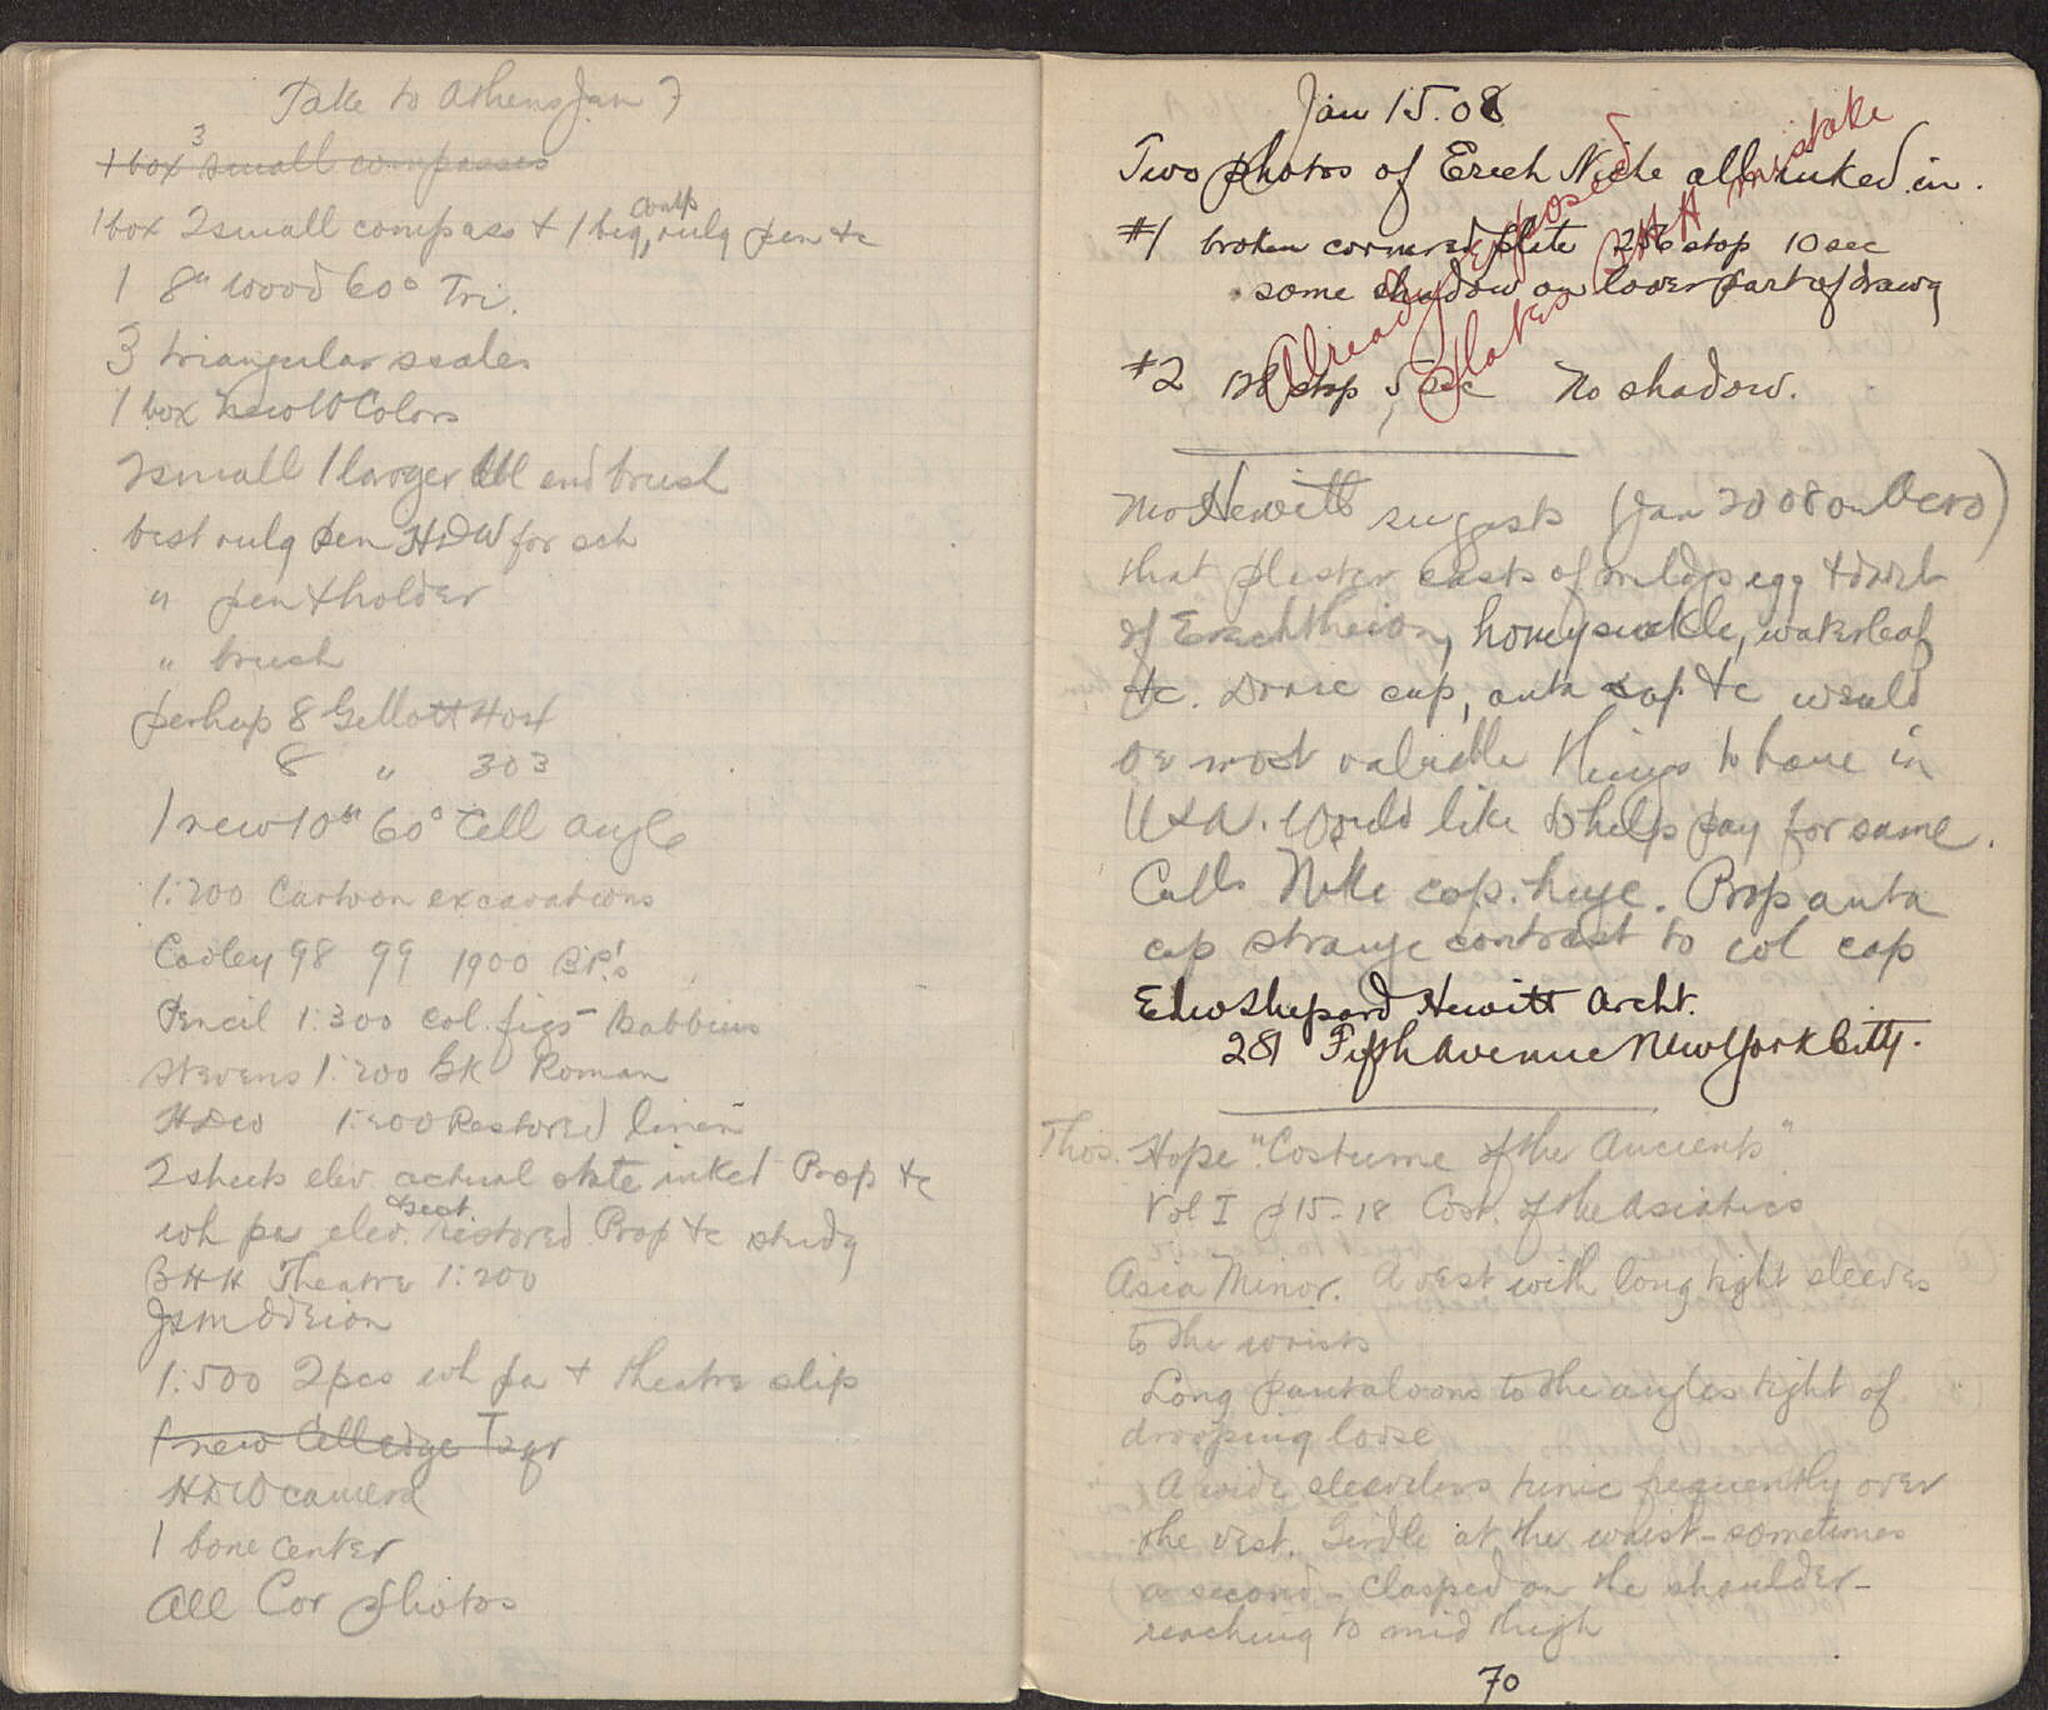 Take to Athens Jan 7
1 box 3 small compasses
1 box 2 small compass + 1 big, comp rulg pen &c
1 8" wood 60° Tri.
3 triangular scales
1 box new W Colors
2 small 1 larger end brush
best rulg pen HDW for sch
" pen & holder
" brush
perhap 8 Gillott 404
8 " 303
1 new 10" 60° Cell angle
1:200 Cartoon excavations
Cooley 98 99 1900 BP's
Pencil 1:300 col. figs - Babbins
Stevens 1:200 Gk Roman
HDW 1:200 Restored linen
2 sheets elev. actual state inked Prop &c
wh pa elev. & sect. restored Prop &c study
BHH Theatre 1:200
Jsm Odeion
1:500 2 pcs wh pa + theatre slip
1 new Celledge T sqr
HDW camera
1 bone center
All Cor photos
Jan 15. 08
Two photos of Erech Niche all inked in.
#1 broken cornered plate 256 stop 10 sec
some shadow on lower part of drawg
#2 128 stop, 5 sec No shadow.
Already Exposed
Plates BHH mistake
Mr Hewitt sugests (Jan 20 08 on Acro)
that plaster casts of mldgs egg & dart
of Erechtheion, honeysuckle, waterleaf
&c. Doric cap, anta cap. &c would
be most valuable things to have in
USA. Would like to help pay for same.
Calls Nike cap. huge. Prop anta
cap strange contrast to col cap
Edw Shepard Hewitt Archt.
281 Fifth Avenue New York Citty.
Thos. Hope "Costume of the Ancients"
Vol I p 15-18 Cost. of the Asiatics
Asia Minor. A vest with long tight sleeves
to the wrists
Long pantaloons to the angles tight of
drooping loose
A wide sleeveless tunic frequently over
the vest. Girdle at the waist - sometimes
a second - clasped on the shoulder -
reaching to mid thigh
70